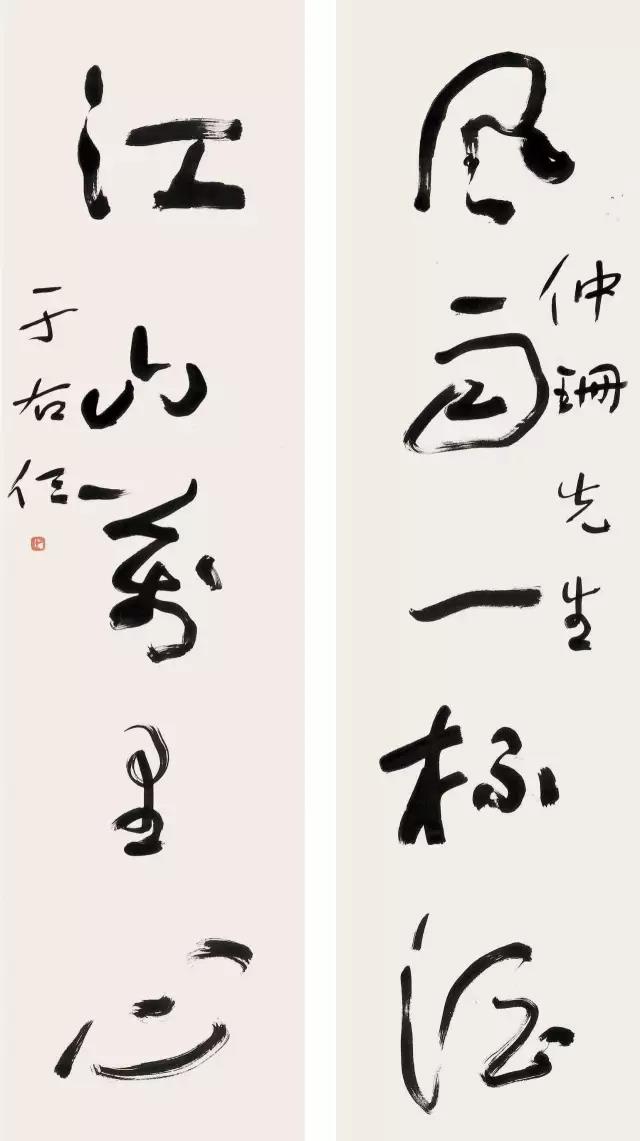 风雨一杯酒
仲珊先生
江山萬里心
于右任